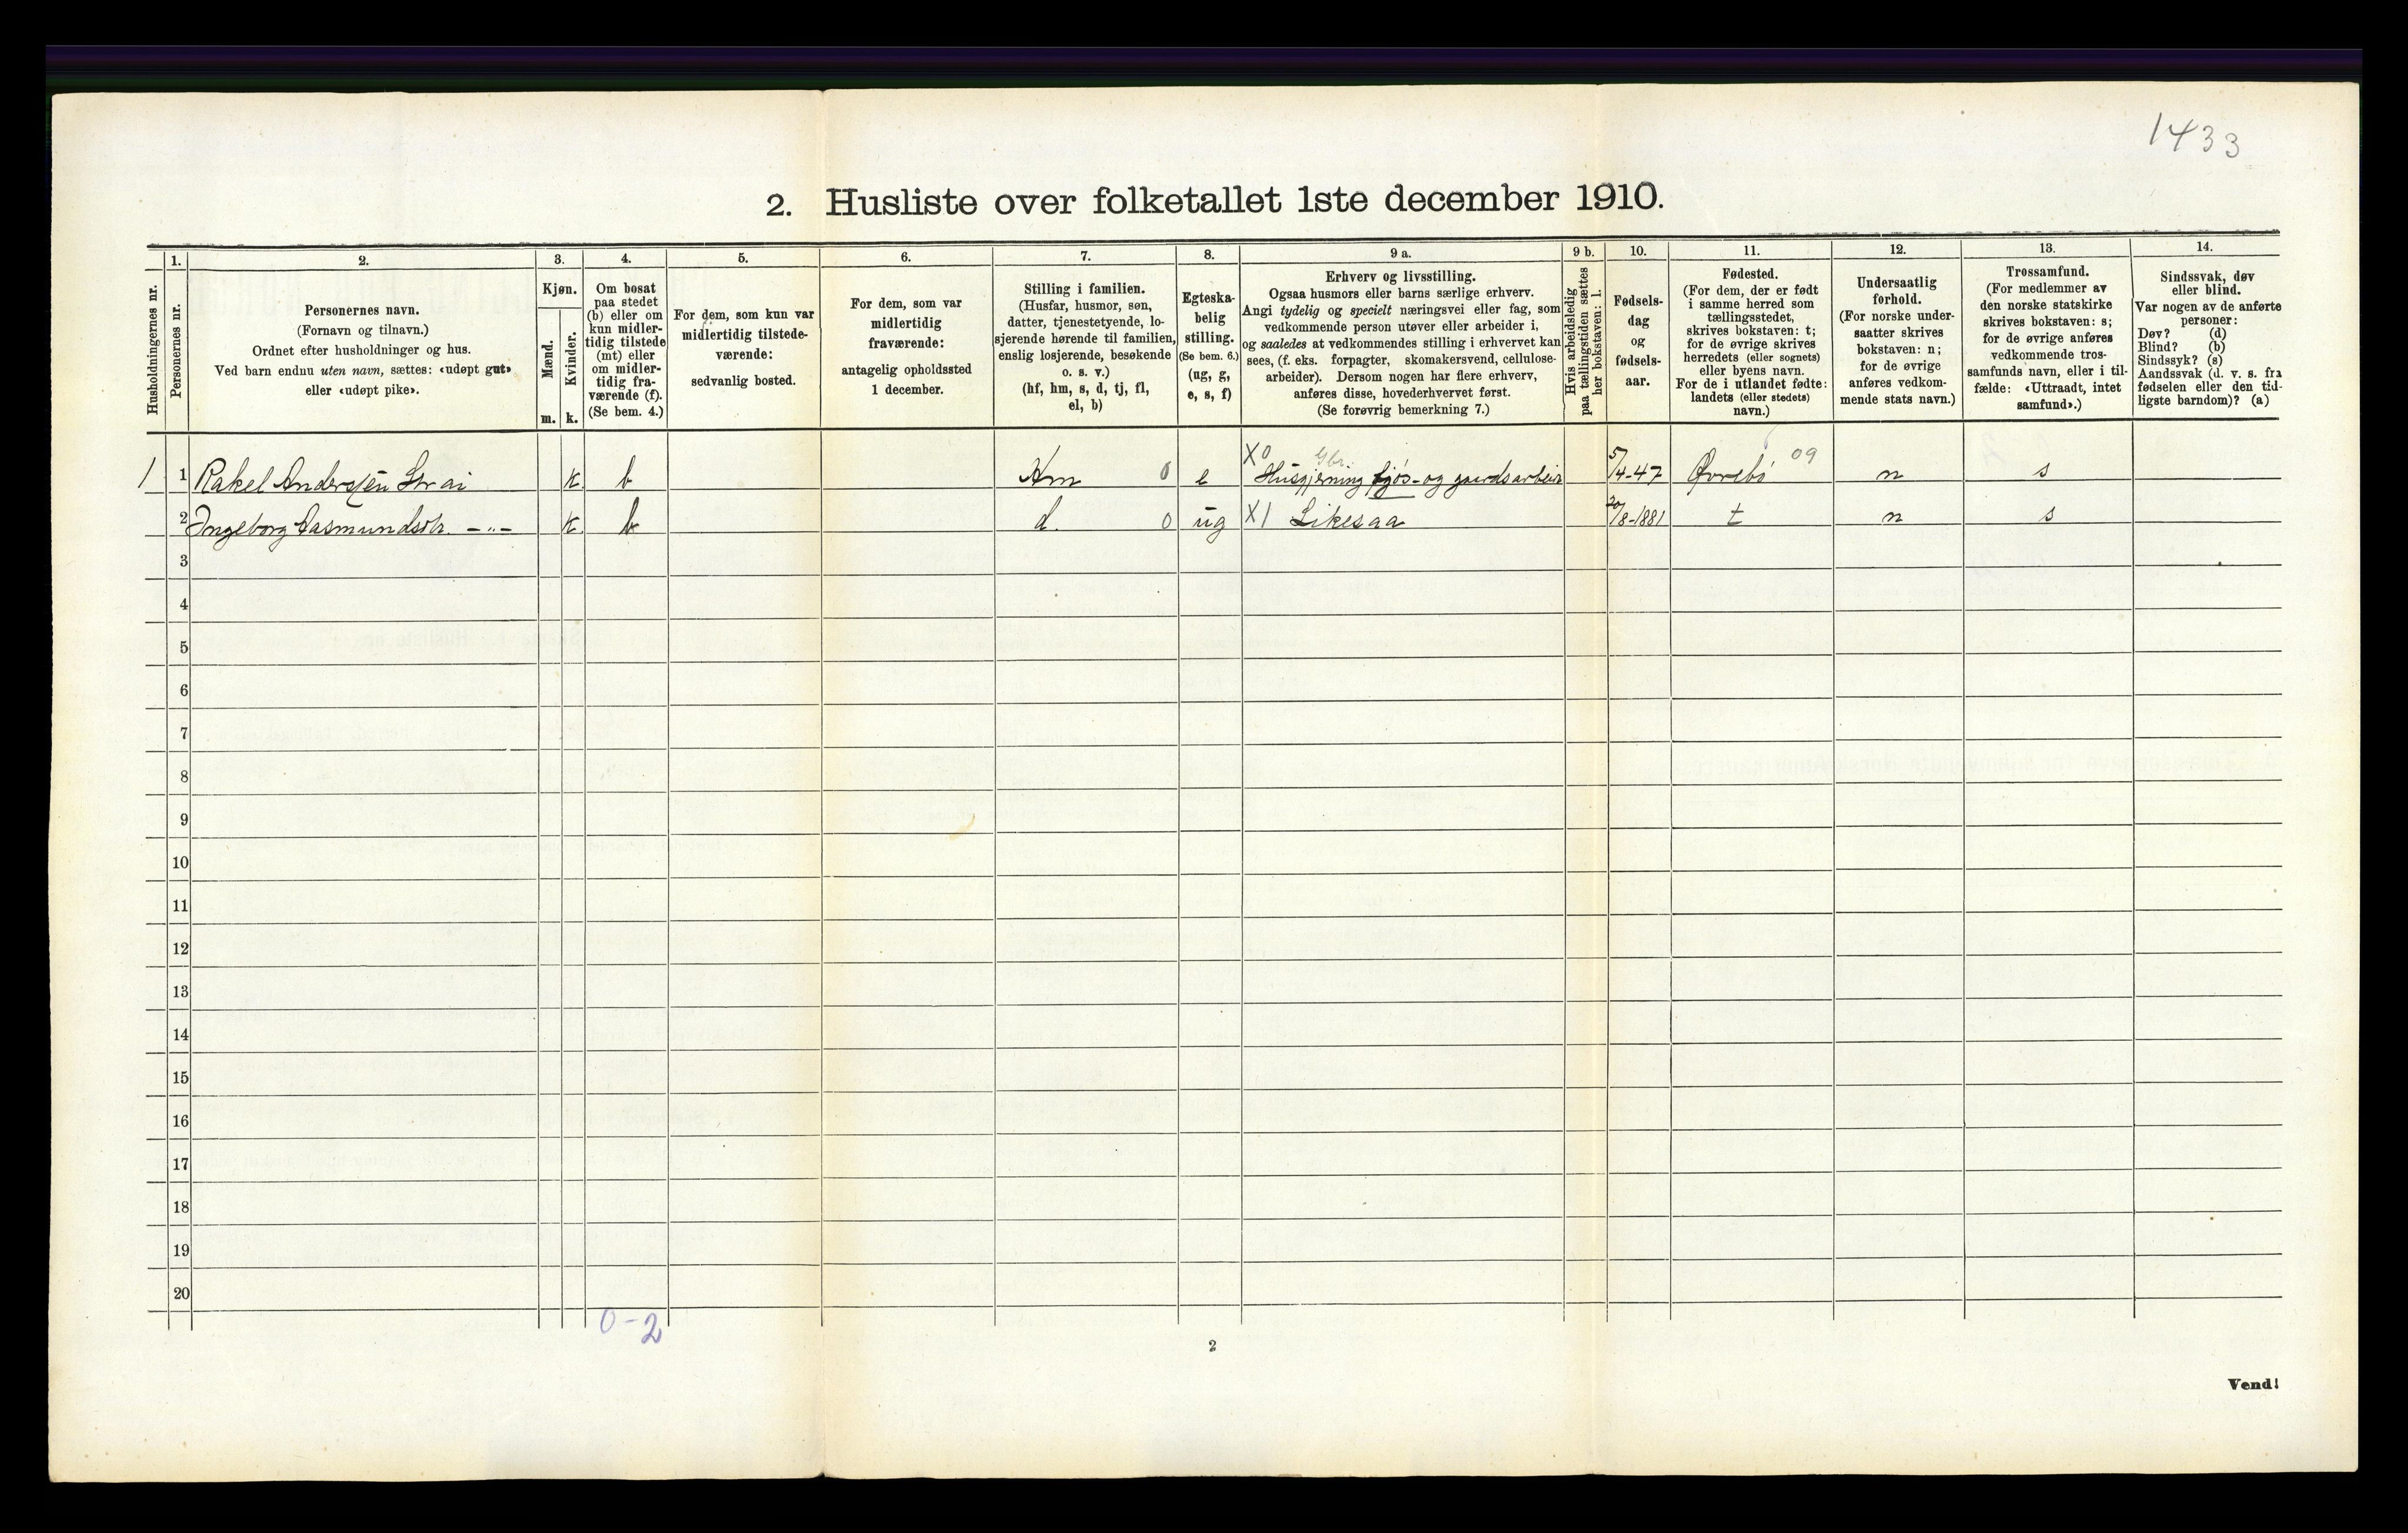 1433
2. Husliste over folketallet 1ste december 1910.
Husholdningernes nr.
1.
Personernes nr.
2.
Personernes navn.
(Fornavn og tilnavn.)
Ordnet efter husholdninger og hus.
Ved barn endnu uten navn, sættes: «udøpt gut»
eller «udøpt pike».
3.
Kjøn.
Mænd.
Kvinder.
m. k.
4.
Om bosat
paa stedet
(b) eller om
kun midler-
tidig tilstede
(mt) eller
om midler-
tidig fra-
værende (f).
(Se bem. 4.)
5.
For dem, som kun var
midlertidig tilstede-
værende:
sedvanlig bosted.
6.
For dem, som var
midlertidig
fraværende:
antagelig opholdssted
1 december.
7.
Stilling i familien.
(Husfar, husmor, søn,
datter, tjenestetyende, lo-
sjerende hørende til familien,
enslig losjerende, besøkende
o. s. v.)
(hf, hm, s, d, tj, fl,
el, b)
8.
Egteska-
belig
stilling.
(Se bem. 6.)
(ug, g,
e, s, f)
9 a.
Erhverv og livsstilling.
Ogsaa husmors eller barns særlige erhverv.
Angi tydelig og specielt næringsvei eller fag, som
vedkommende person utøver eller arbeider i,
og saaledes at vedkommendes stilling i erhvervet kan
sees, (f. eks. forpagter, skomakersvend, cellulose-
arbeider). Dersom nogen har flere erhverv,
anføres disse, hovederhvervet først.
(Se forøvrig bemerkning 7.)
9 b.
Hvis arbeidsledig
paa tællingstiden sættes
her bokstaven: l.
10.
Fødsels-
dag
og
fødsels-
aar.
11.
Fødested.
(For dem, der er født
i samme herred som
tællingsstedet,
skrives bokstaven: t;
for de øvrige skrives
herredets (eller sognets)
eller byens navn.
For de i utlandet fødte:
landets (eller stedets)
navn.)
12.
Undersaatlig
forhold.
(For norske under-
saatter skrives
bokstaven: n;
for de øvrige
anføres vedkom-
mende stats navn.)
13.
Trossamfund.
(For medlemmer av
den norske statskirke
skrives bokstaven: s;
for de øvrige anføres
vedkommende tros-
samfunds navn, eller i til-
fælde: «Uttraadt, intet
samfund».)
14.
Sindssvak, døv
eller blind.
Var nogen av de anførte
personer:
Døv? (d)
Blind? (b)
Sindssyk? (s)
Aandssvak (d. v. s. fra
fødselen eller den tid-
ligste barndom)? (a)
1 1 Rakel Andersen Strai k b Hm 0 e X0 Gbr. Husgjerning fjøs- og gaardsarbeide 5/4-47 Øvrebö 09 n s
2 Ingeborg Aasmundsdtr. -„- k b d. 0 ug X1 Likesaa 20/8-1881 t n s
3
4
5
6
7
8
9
10
11
12
13
14
15
16
17
18
19
20
0-2
2
Vend!